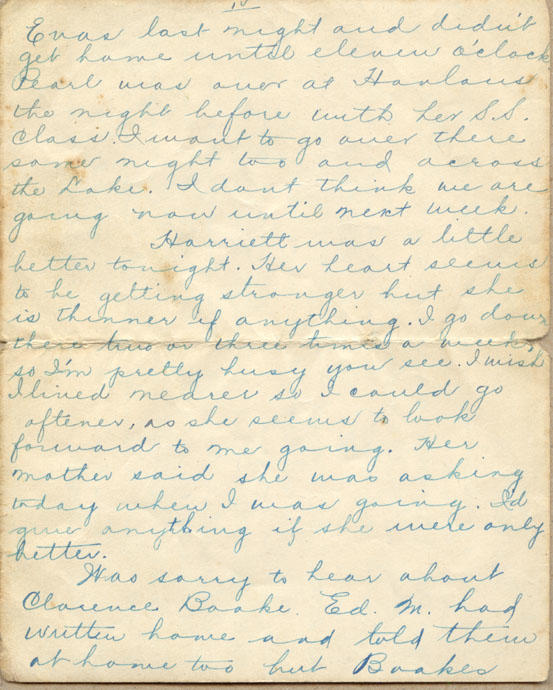 Evas last night and didn't
get home until eleven o'clock
Pearl was over at Hanlans
the night before with her S.S.
Class. I want to go over there
some night too and across
the Lake. I dont think we are
going now until next week.
Harriett was a little
better tonight. Her heart seems
to be getting stronger but she
is thinner if anything. I go down
there two or three times a week,
so I'm pretty busy you see. I wish
I lived nearer so I could go
oftener, as she seems to look
forward to me going. Her
mother said she was asking
today when I was going. I'd
give anything if she were only
better.
Was sorry to hear about
Clarence Boake. Ed. M. had
written home and told them
at home too but Boakes